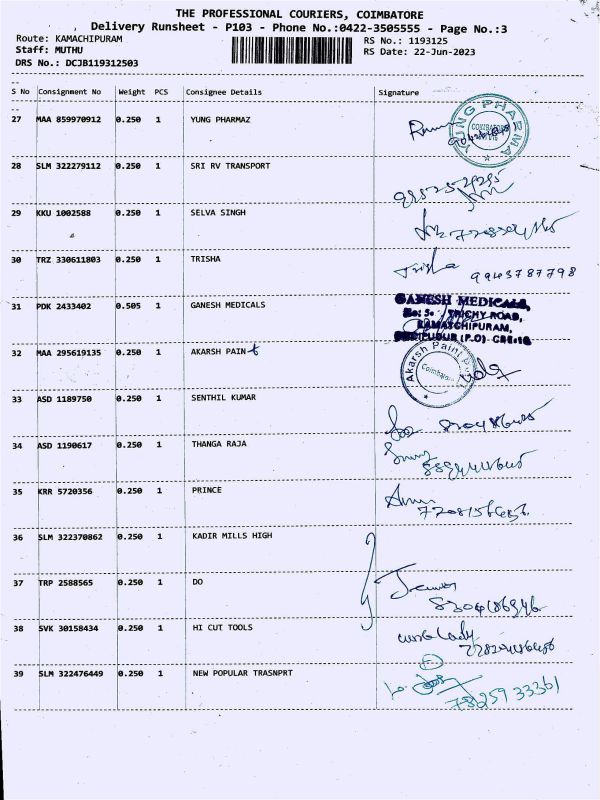 THE PROFESSIONAL COURIERS, COIMBATORE
Delivery Runsheet - P103 - Phone No.:0422-3505555 - Page No.:3
Route: KAMACHIPURAM RS No.: 1193125
Staff: MUTHU RS Date: 22-Jun-2023
DRS No.: DCJB119312503
S No Consignment No Weight PCS Consignee Details Signature
27 MAA 859970912 0.250 1 YUNG PHARMAZ
YUNG PHARMA
28 SLM 322279112 0.250 1 SRI RV TRANSPORT
29 KKU 1002588 0.250 1 SELVA SINGH
30 TRZ 330611803 0.250 1 TRISHA Trisha 9943787798
31 PDK 2433402 0.505 1 GANESH MEDICALS
GANESH MEDICALS,
TRICHY ROAD,
RAMATCHIPURAM,
32 MAA 295619135 0.250 1 AKARSH PAINt
Akarsh Paint
33 ASD 1189750 0.250 1 SENTHIL KUMAR
34 ASD 1190617 0.250 1 THANGA RAJA
35 KRR 5720356 0.250 1 PRINCE
36 SLM 322370862 0.250 1 KADIR MILLS HIGH
37 TRP 2588565 0.250 1 DO
38 SVK 30158434 0.250 1 HI CUT TOOLS
39 SLM 322476449 0.250 1 NEW POPULAR TRASNPRT 78259 33361